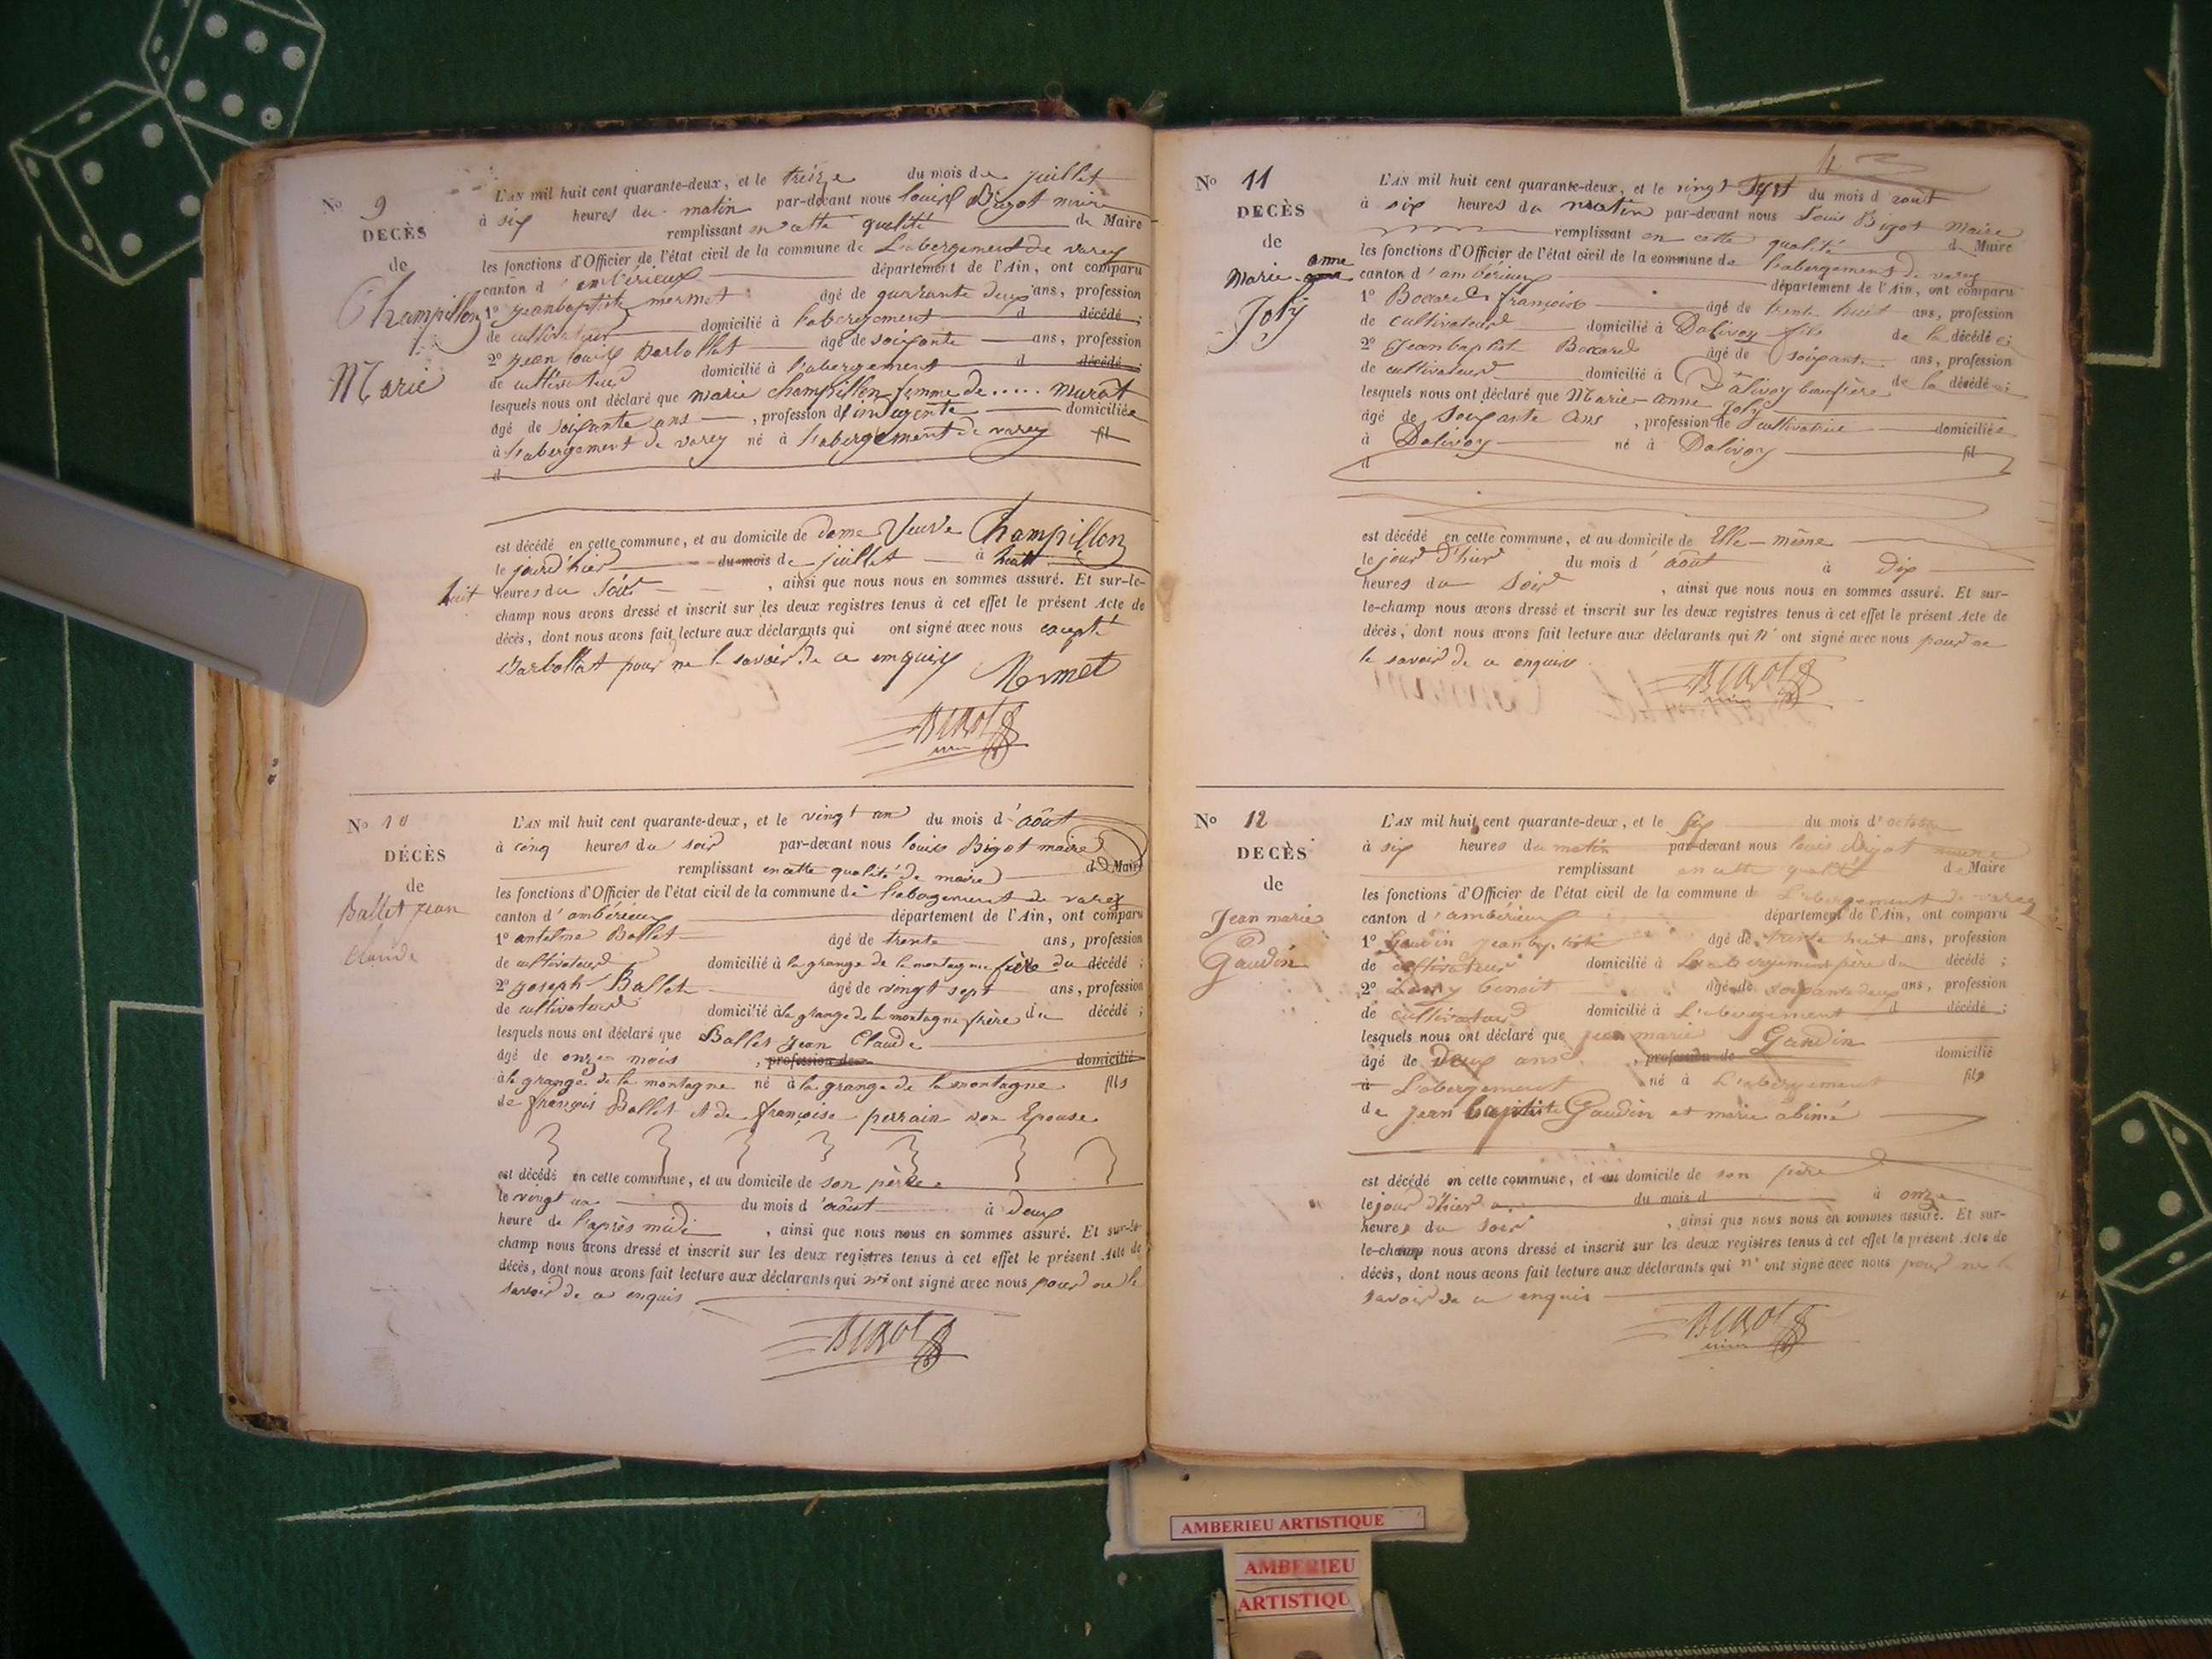 N° 9
DECÈS
de
Champillon
Marie
L'AN mil huit cent quarante-deux, et le treize du mois de juillet
à six heures du matin par-devant nous louis Bigot maire
remplissant en cette qualité de Maire
les fonctions d'Officier de l'état civil de la commune de L'abergement de varey
canton d'ambérieux département de l'Ain, ont comparu
1° jeanbaptiste mermet âgé de quarante deux ans, profession
de cultivateur domicilié à l'abergement d décédé ;
2° jean louis Barbollat âgé de soixante ans, profession
de cultivateur domicilié à l'abergement d décédé ;
lesquels nous ont déclaré que marie champillon femme de ..... murat
âgé de soixante ans , profession d'indigente domiciliée
à l'abergement de varey né à l'abergement de varey fil
d
est décédé en cette commune, et au domicile de dame Veuve Champillon
le jour d'hier du mois de juillet à huit
huit heures du soir , ainsi que nous nous en sommes assuré. Et sur-le-
champ nous avons dressé et inscrit sur les deux registres tenus à cet effet le présent Acte de
décès, dont nous avons fait lecture aux déclarants qui ont signé avec nous excepté
Barbollat pour ne le savoir de ce enquis Mermet
BIGOT
N° 10
DÉCÈS
de
Ballet jean
claude
L'AN mil huit cent quarante-deux, et le vingt un du mois d'août
à cinq heures du soir par-devant nous louis Bigot maire
remplissant en cette qualité de maire d Maire
les fonctions d'Officier de l'état civil de la commune de l'abergement de varey
canton d'ambérieux département de l'Ain, ont comparu
1° antelme Ballet âgé de trente ans, profession
de cultivateur domicilié à la grange de la montagne frère du décédé ;
2° joseph Ballet âgé de vingt sept ans, profession
de cultivateur domicilié à la grange de la montagne frère du décédé ;
lesquels nous ont déclaré que Ballet jean Claude
âgé de onze mois , profession de domicilié
à la grange de la montagne né à la grange de la montagne fils
de françois Ballet et de françoise perrain son Epouse
est décédé en cette commune, et au domicile de son père
le vingt un du mois d'août à deux
heure de l'après midi , ainsi que nous nous en sommes assuré. Et sur-le-
champ nous avons dressé et inscrit sur les deux registres tenus à cet effet le présent Acte de
décès, dont nous avons fait lecture aux déclarants qui n'ont signé avec nous pour ne le
savoir de ce enquis
BIGOT
N° 11
DECÈS
de
Marie-anne
Joly
L'AN mil huit cent quarante-deux, et le vingt Sept du mois d'août
à six heures du matin par-devant nous Louis Bigot Maire
remplissant en cette qualité de Maire
les fonctions d'Officier de l'état civil de la commune de l'abergement de varey
canton d'ambérieux département de l'Ain, ont comparu
1° Bocard françois âgé de trente huit ans, profession
de cultivateur domicilié à Dalivoy fils de la décédée ;
2° Jeanbaptiste Bocard âgé de soixante ans, profession
de cultivateur domicilié à Dalivoy beaufrère de la décédée ;
lesquels nous ont déclaré que Marie-anne Joly
âgé de Soixante ans , profession de cultivatrice domiciliée
à Dalivoy né à Dalivoy fil
d
est décédé en cette commune, et au domicile de Elle-même
le jour d'hier du mois d'août à dix
heures du Soir , ainsi que nous nous en sommes assuré. Et sur-
le-champ nous avons dressé et inscrit sur les deux registres tenus à cet effet le présent Acte de
décès, dont nous avons fait lecture aux déclarants qui n'ont signé avec nous pour ne
le savoir de ce enquis
BIGOT
N° 12
DECÈS
de
Jean marie
Gaudin
L'AN mil huit cent quarante-deux, et le six du mois d'octobre
à six heures du matin par-devant nous louis Bigot maire
remplissant en cette qualité de Maire
les fonctions d'Officier de l'état civil de la commune de L'abergement de varey
canton d'ambérieux département de l'Ain, ont comparu
1° Gaudin jean baptiste âgé de trente huit ans, profession
de cultivateur domicilié à L'abergement père du décédé ;
2° benoit âgé de soixante deux ans, profession
de cultivateur domicilié à L'abergement d décédé ;
lesquels nous ont déclaré que jean marie Gaudin
âgé de Deux ans , profession de domicilié
à L'abergement né à L'abergement fils
de jean baptiste Gaudin et marie abimé
est décédé en cette commune, et au domicile de son père
le jour d'hier du mois d à onze
heures du soir , ainsi que nous nous en sommes assuré. Et sur-
le-champ nous avons dressé et inscrit sur les deux registres tenus à cet effet le présent Acte de
décès, dont nous avons fait lecture aux déclarants qui n'ont signé avec nous pour ne le
savoir de ce enquis
BIGOT
AMBERIEU ARTISTIQUE
AMBERIEU
ARTISTIQU